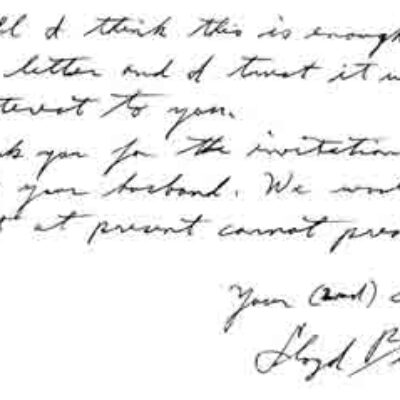 I think this is enough
letter and I trust it
to you.
you for the invitation
your husband. We
at present cannot
Your (and)
Lloyd